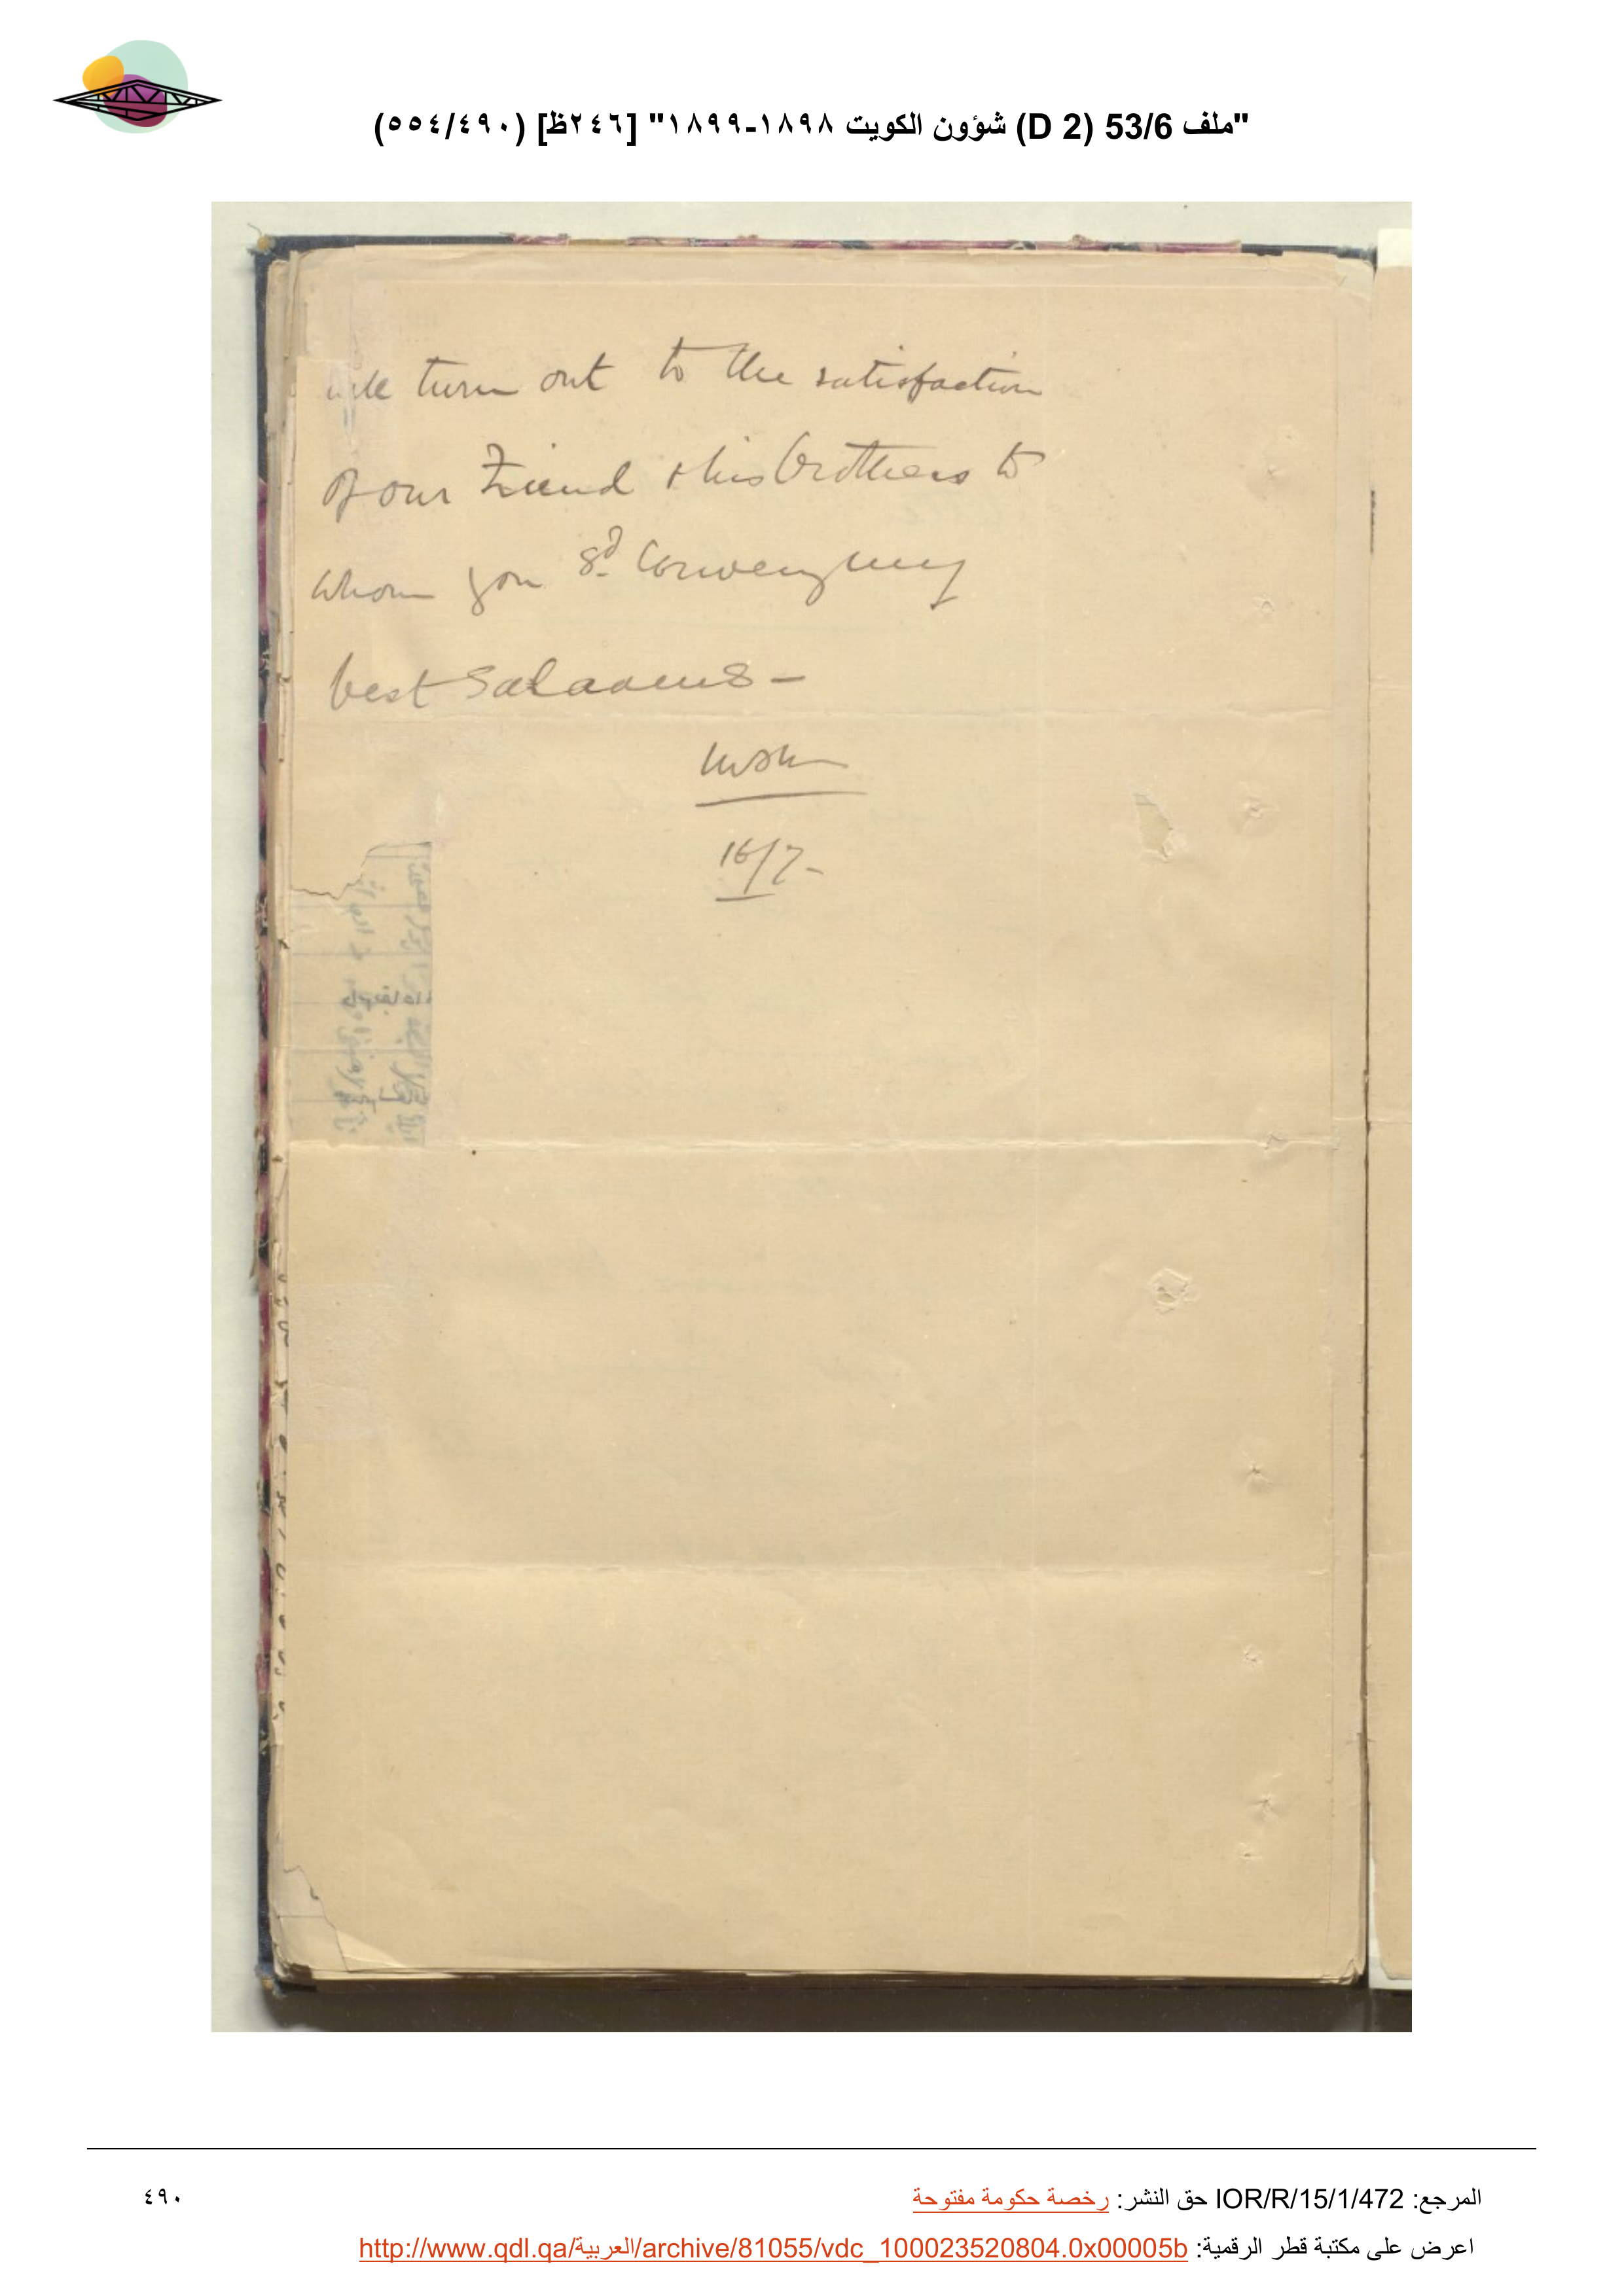 "ملف 53/6 (D 2) شؤون الكويت ١٨٩٨-١٨٩٩" [٢٤٦ظ] (٥٥٤/٤٩٠)
will turn out to the satisfaction
of our Friend & his brothers to
whom you sd. convey my
best Salaams -
16/7 -
المرجع: IOR/R/15/1/472 حق النشر: رخصة حكومة مفتوحة
٤٩٠
اعرض على مكتبة قطر الرقمية: http://www.qdl.qa/العربية/archive/81055/vdc_100023520804.0x00005b